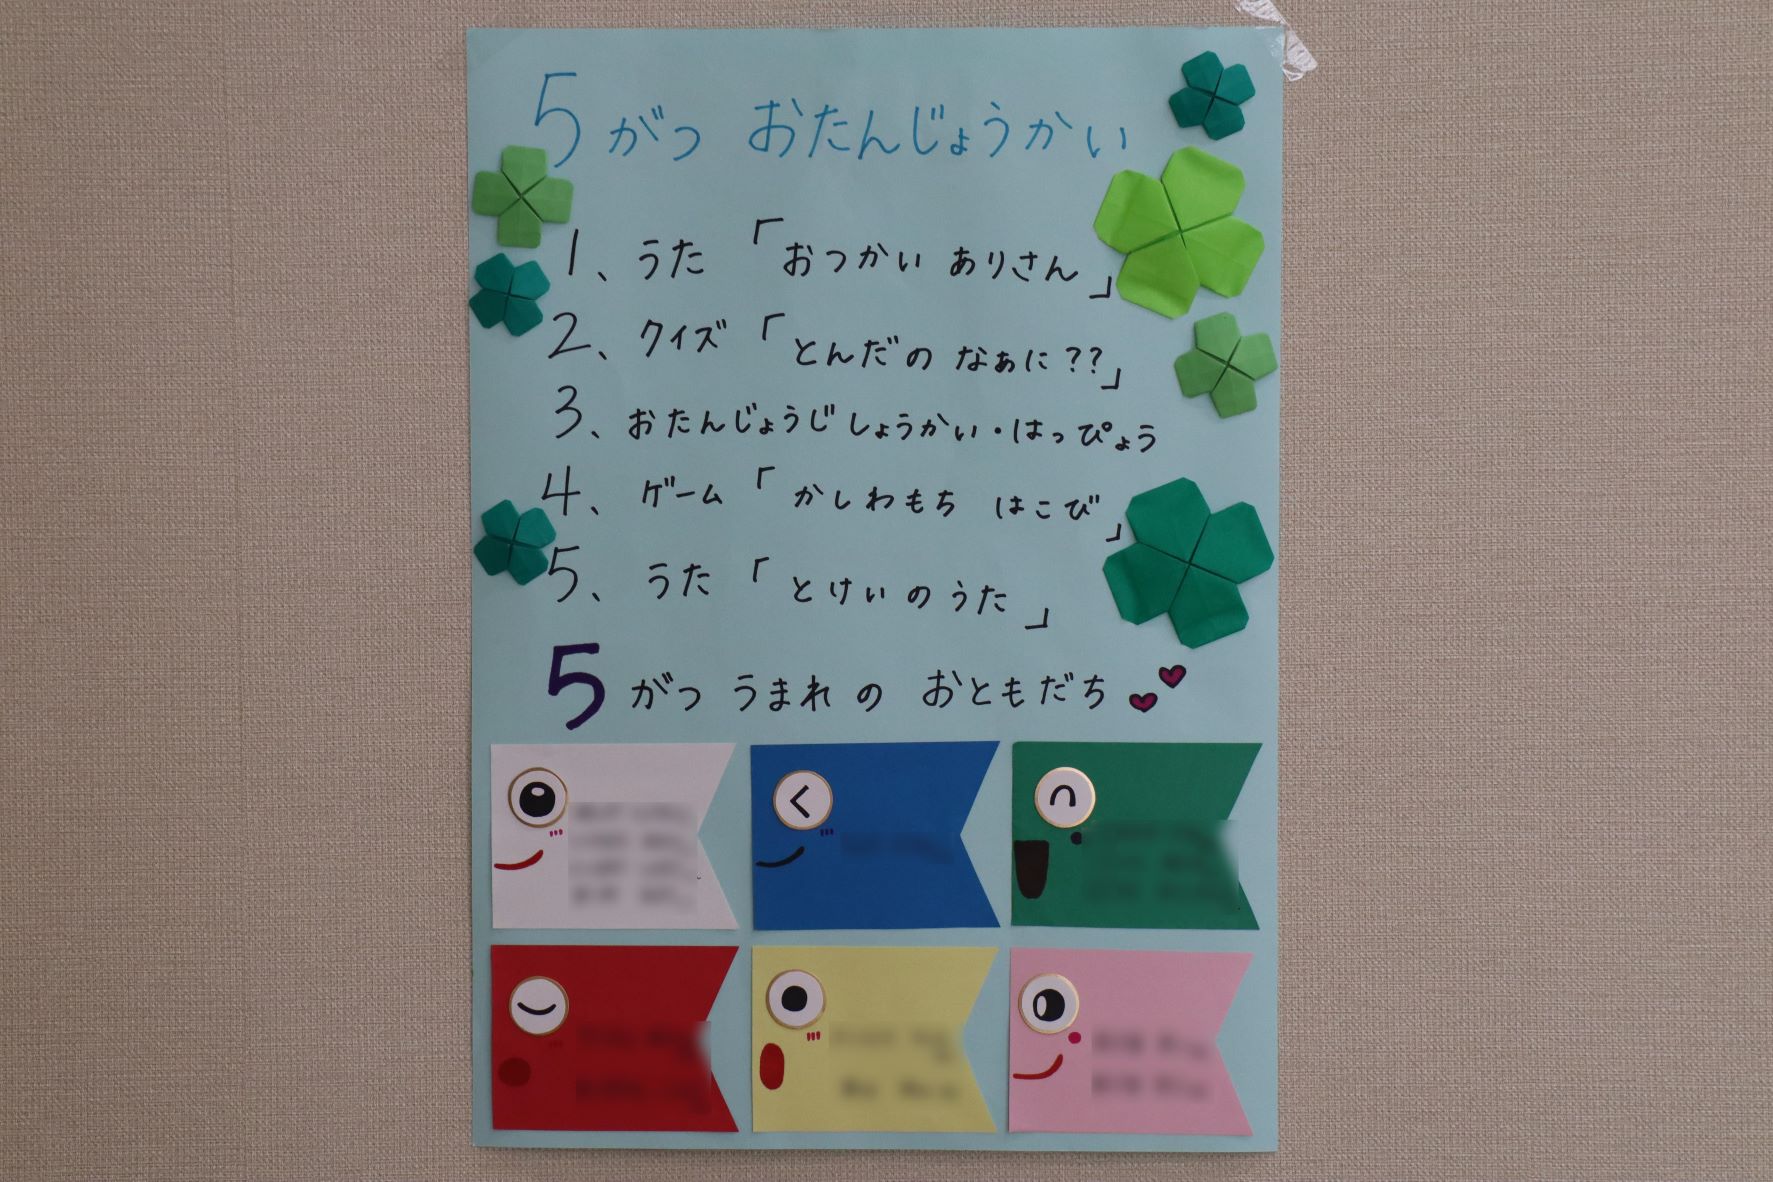 5がつ おたんじょうかい
1、うた「おつかい ありさん」
2、クイズ「とんだの なぁに??」
3、おたんじょうじ しょうかい・はっぴょう
4、ゲーム「かしわもち はこび」
5、うた「とけいのうた」
5がつ うまれ の おともだち